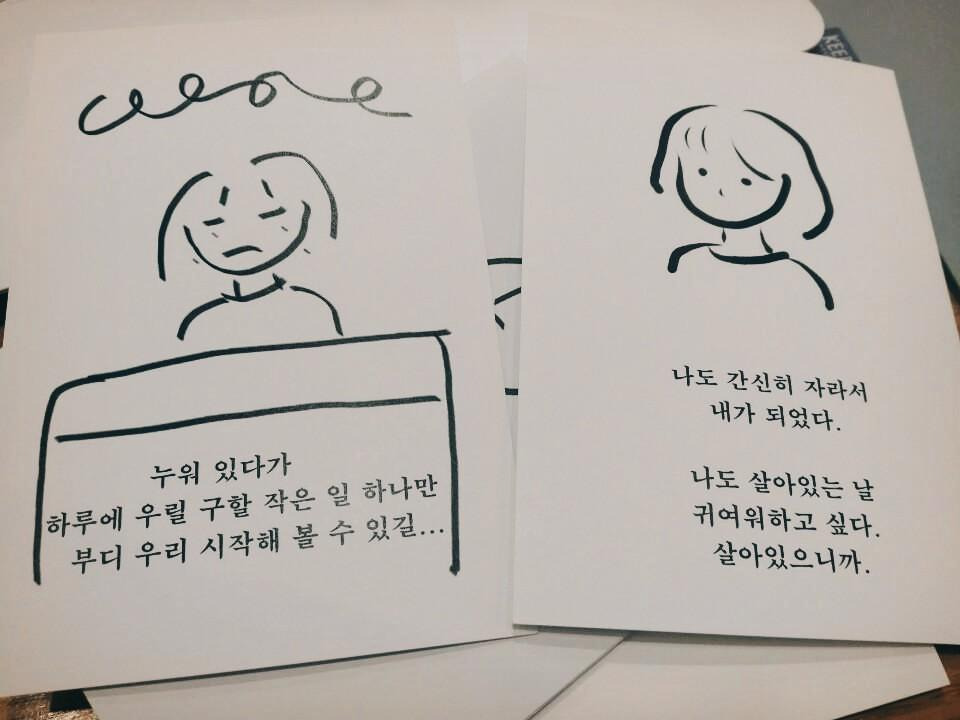 누워 있다가
하루에 우릴 구할 작은 일 하나만
부디 우리 시작해 볼 수 있길...
나도 간신히 자라서
내가 되었다.
나도 살아있는 날
귀여워하고 싶다.
살아있으니까.